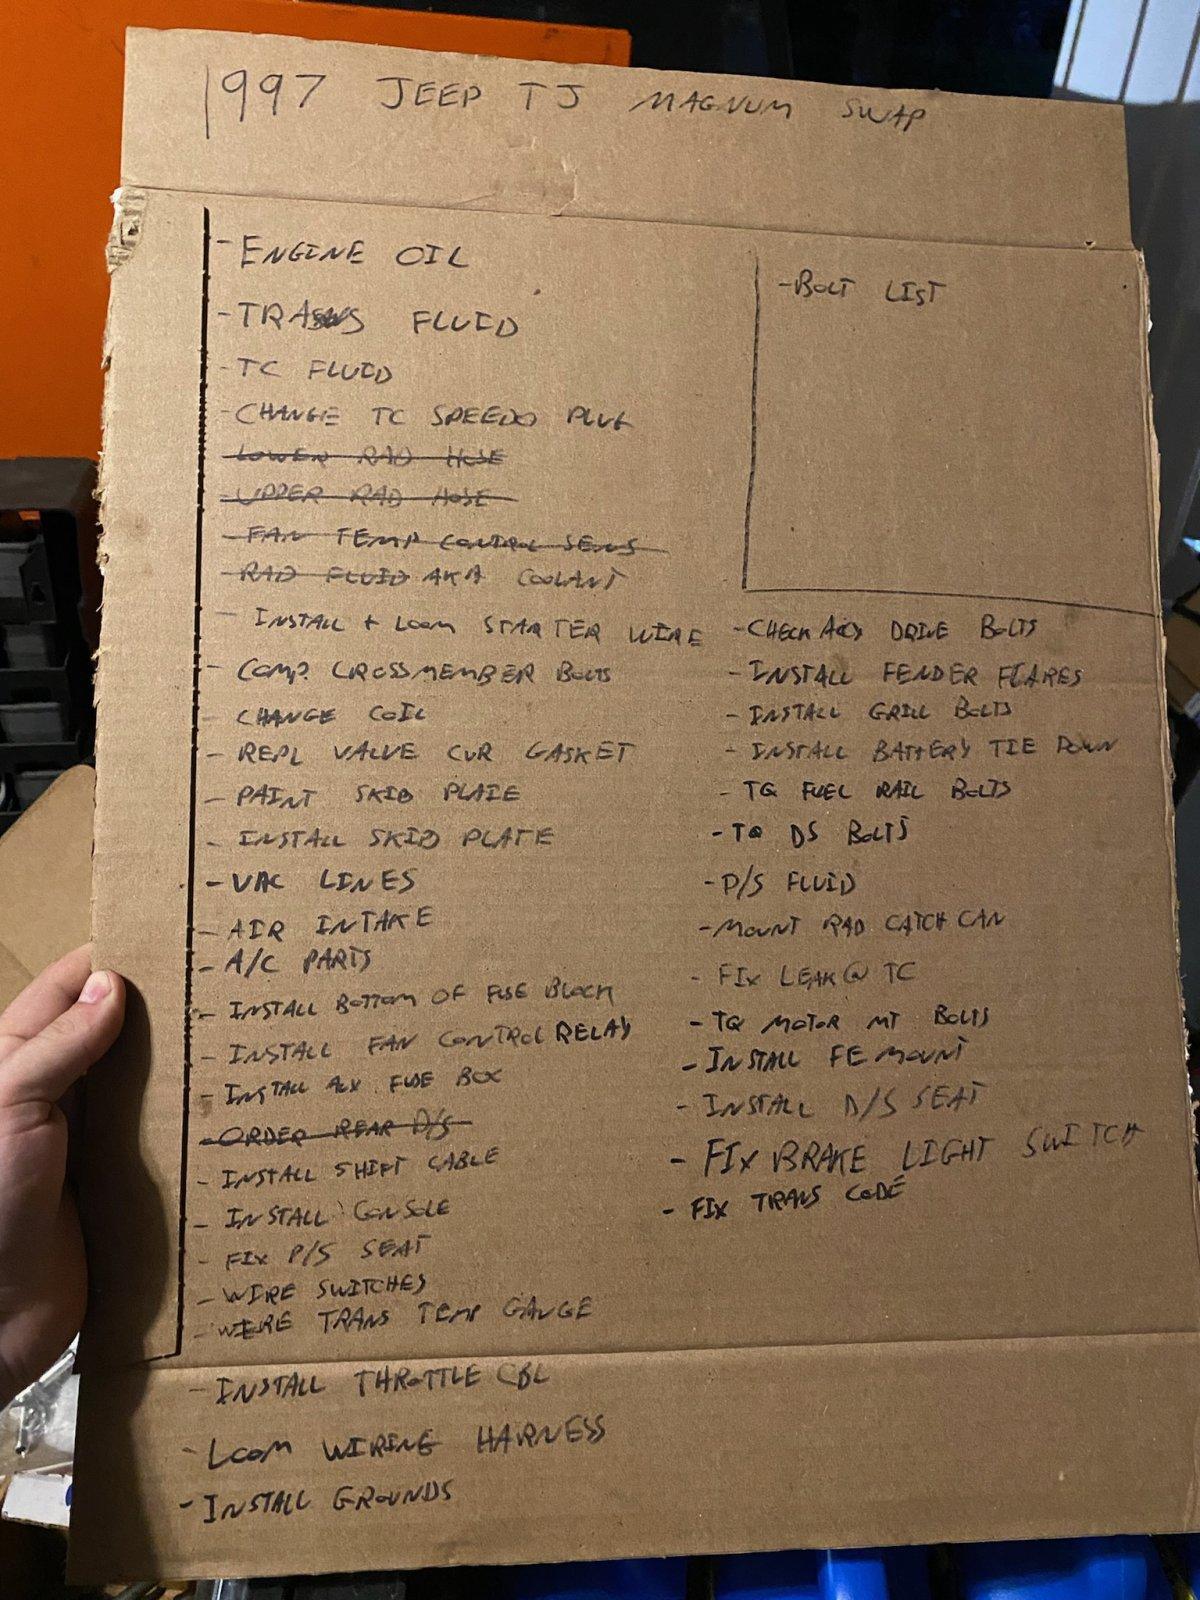 1997 JEEP TJ MAGNUM SWAP
- ENGINE OIL
- TRANS FLUID
- TC FLUID
- CHANGE TC SPEEDO PLUG
- LOWER RAD HOSE
- UPPER RAD HOSE
- FAN TEMP CONTROL SENS
- RAD FLUID AKA COOLANT
- INSTALL + LOOM STARTER WIRE
- COMP. CROSSMEMBER BOLTS
- CHANGE COIL
- REPL VALVE CVR GASKET
- PAINT SKID PLATE
- INSTALL SKID PLATE
- VAC LINES
- AIR INTAKE
- A/C PARTS
- INSTALL BOTTOM OF FUSE BLOCK
- INSTALL FAN CONTROL RELAY
- INSTALL AUX FUSE BOX
- ORDER REAR D/S
- INSTALL SHIFT CABLE
- INSTALL CONSOLE
- FIX P/S SEAT
- WIRE SWITCHES
- WIRE TRANS TEMP GAUGE
- INSTALL THROTTLE CBL
- LOOM WIRING HARNESS
- INSTALL GROUNDS
- BOLT LIST
- CHECK DRIVE BOLTS
- INSTALL FENDER FLARES
- INSTALL GRILL BOLTS
- INSTALL BATTERY TIE DOWN
- TQ FUEL RAIL BOLTS
- TQ DS BOLTS
- P/S FLUID
- MOUNT RAD CATCH CAN
- FIX LEAK @ TC
- TQ MOTOR MT BOLTS
- INSTALL FE MOUNT
- INSTALL D/S SEAT
- FIX BRAKE LIGHT SWITCH
- FIX TRANS CODE